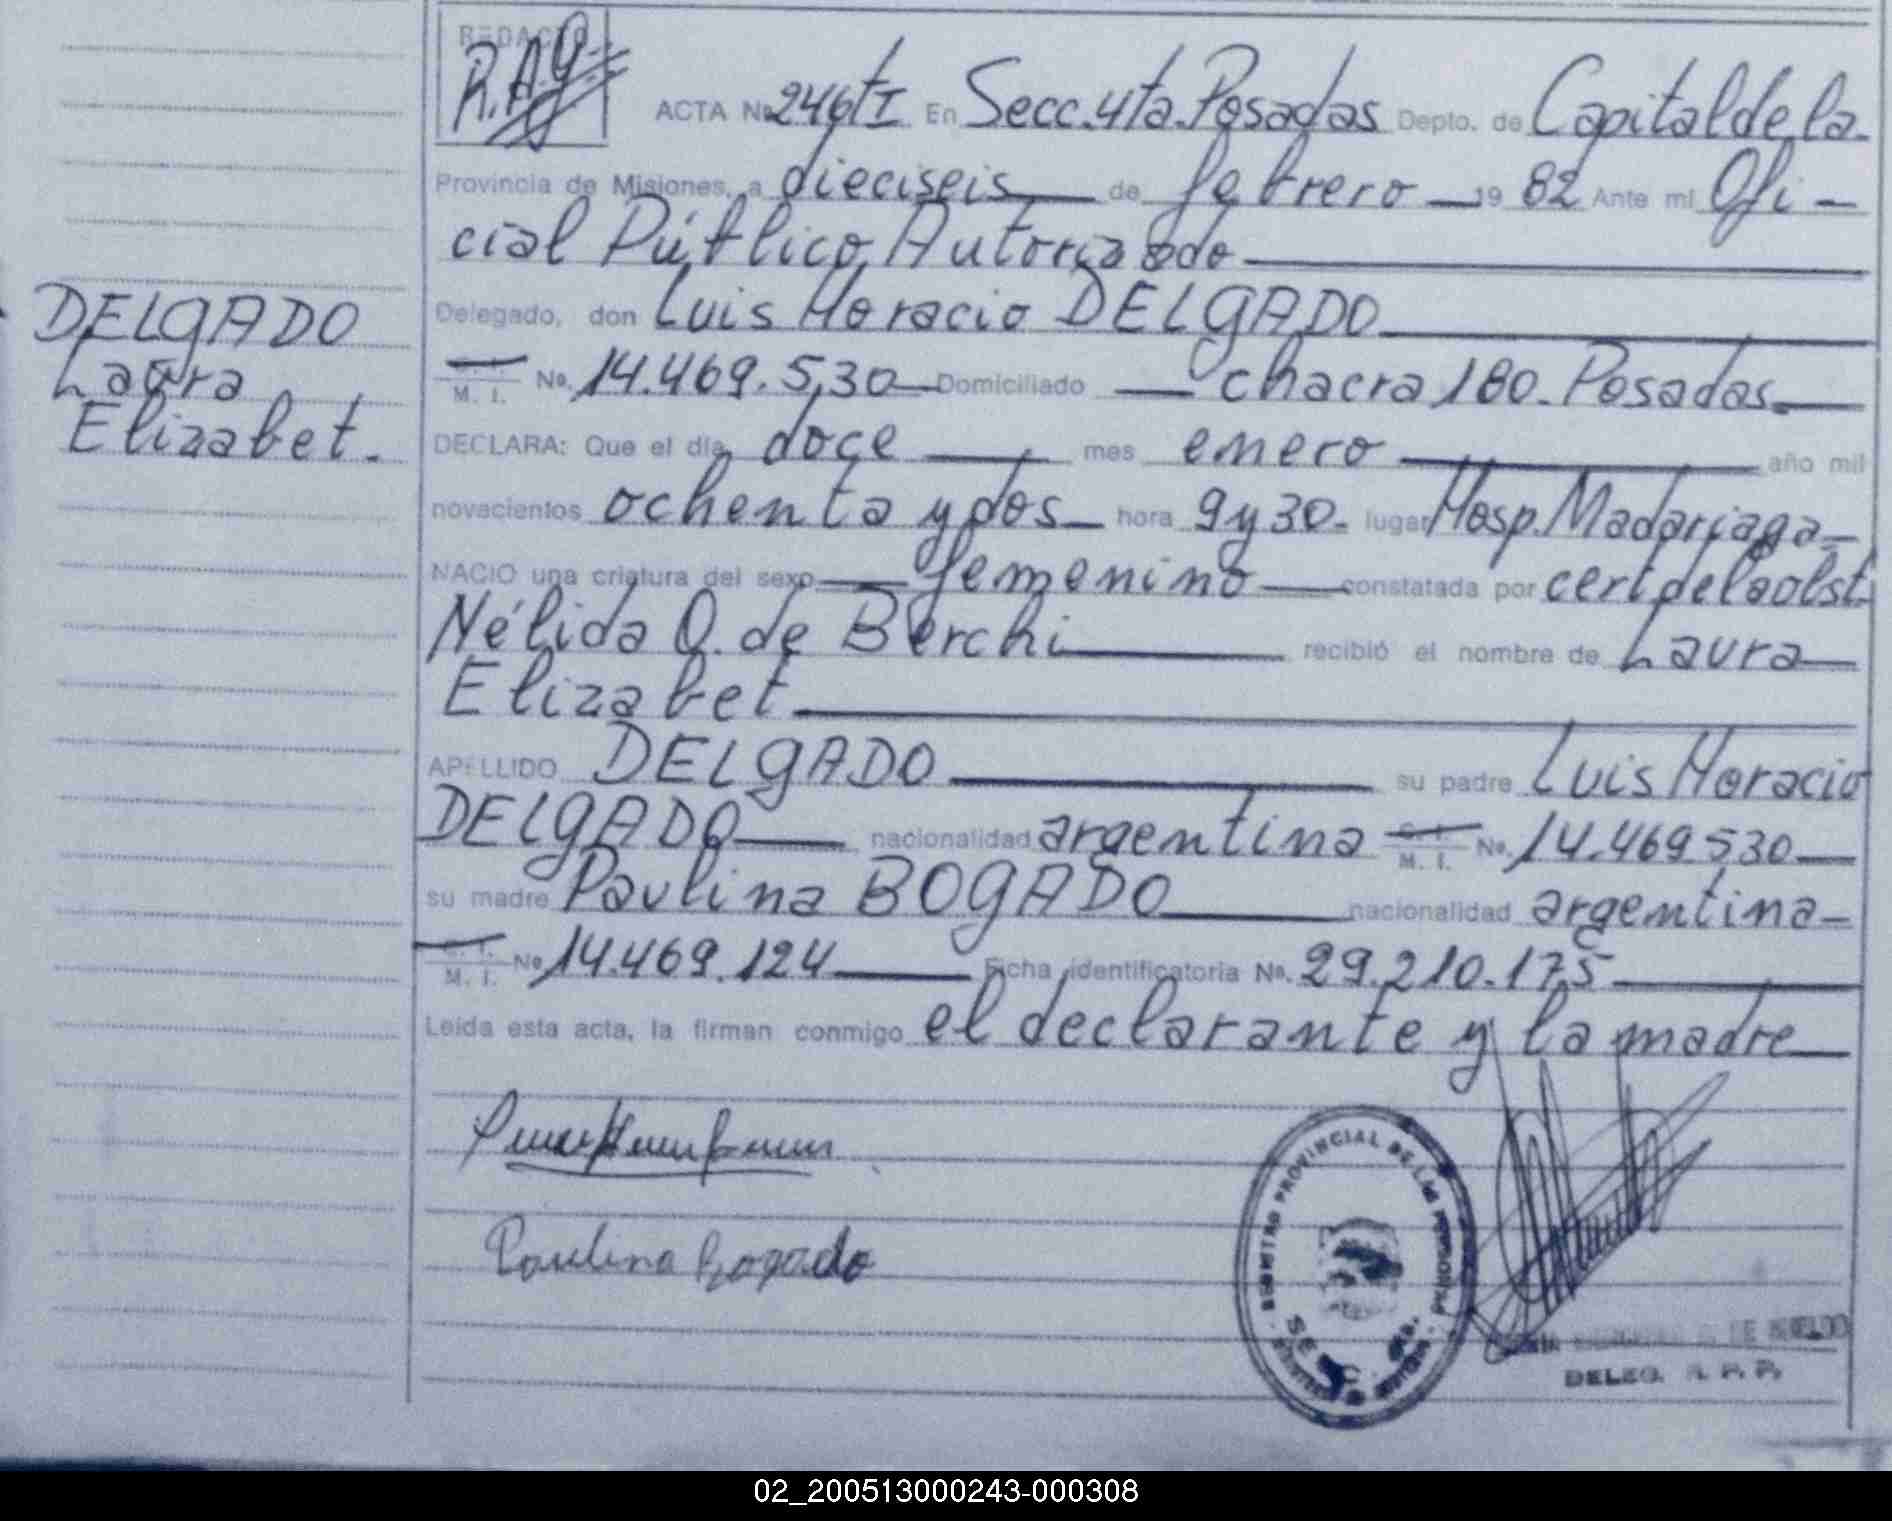 REDACTO
R.A.G.
ACTA Nº 246tI En Secc. 4ta. Posadas Depto. de Capital de la
Provincia de Misiones, a dieciseis de febrero 19 82 Ante mi Ofi-
cial Público Autorizado
DELGADO
Laura
Elizabet.
Delegado, don Luis Horacio DELGADO
C. I.
M. I. Nº. 14.469.530 Domiciliado chacra 180. Posadas.
DECLARA: Que el día doce mes enero año mil
novecientos ochenta y dos hora 9 y 30. lugar Hosp. Madariaga
NACIO una criatura del sexo femenino constatada por cert de la obst.
Nélida O. de Berchi recibió el nombre de Laura
Elizabet
APELLIDO DELGADO su padre Luis Horacio
DELGADO nacionalidad argentina C. I.
M. I. Nº. 14.469 530
su madre Paulina BOGADO nacionalidad argentina
C. I.
M. I. Nº 14.469.124 Ficha identificatoria Nº. 29.210.175
Leída esta acta, la firman conmigo el declarante y la madre
Paulina Bogado
REGISTRO PROVINCIAL DE LAS PERSONAS
DELEG. R. P. P.
02_200513000243-000308